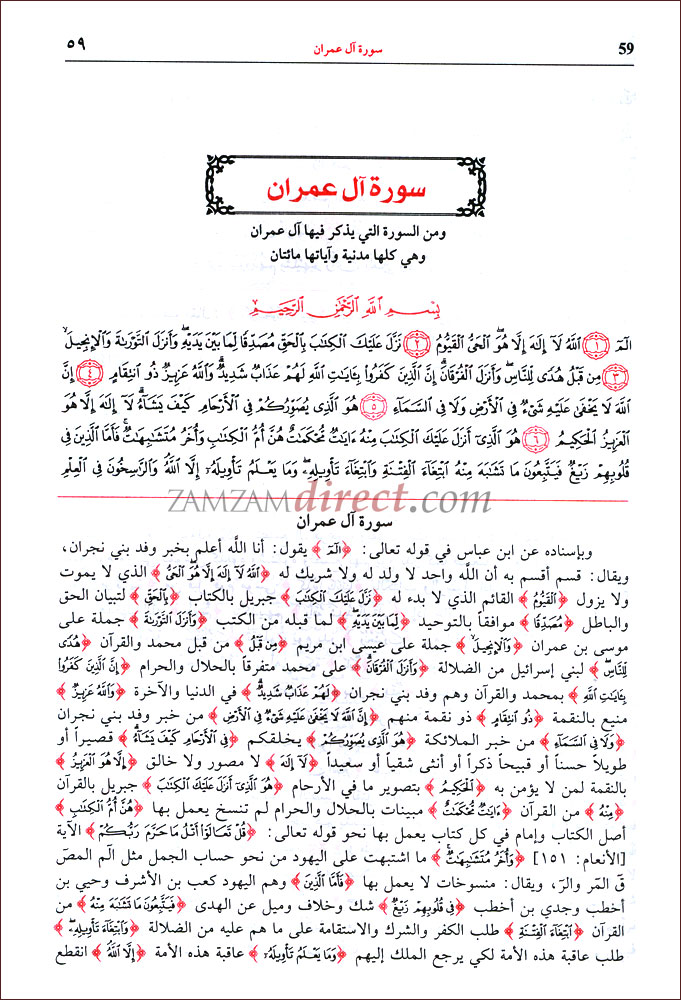 ٥٩ سورة آل عمران 59
سورة آل عمران
ومن السورة التي يذكر فيها آل عمران
وهي كلها مدنية وآياتها مائتان
بِسْمِ ٱللَّهِ ٱلرَّحْمَٰنِ ٱلرَّحِيمِ
الٓمٓ ۝١ ٱللَّهُ لَآ إِلَٰهَ إِلَّا هُوَ ٱلْحَىُّ ٱلْقَيُّومُ ۝٢ نَزَّلَ عَلَيْكَ ٱلْكِتَٰبَ بِٱلْحَقِّ مُصَدِّقًا لِّمَا بَيْنَ يَدَيْهِ وَأَنزَلَ ٱلتَّوْرَىٰةَ وَٱلْإِنجِيلَ
۝٣ مِن قَبْلُ هُدًى لِّلنَّاسِ وَأَنزَلَ ٱلْفُرْقَانَ إِنَّ ٱلَّذِينَ كَفَرُوا۟ بِـَٔايَٰتِ ٱللَّهِ لَهُمْ عَذَابٌ شَدِيدٌ وَٱللَّهُ عَزِيزٌ ذُو ٱنتِقَامٍ ۝٤ إِنَّ
ٱللَّهَ لَا يَخْفَىٰ عَلَيْهِ شَىْءٌ فِى ٱلْأَرْضِ وَلَا فِى ٱلسَّمَآءِ ۝٥ هُوَ ٱلَّذِى يُصَوِّرُكُمْ فِى ٱلْأَرْحَامِ كَيْفَ يَشَآءُ لَآ إِلَٰهَ إِلَّا هُوَ
ٱلْعَزِيزُ ٱلْحَكِيمُ ۝٦ هُوَ ٱلَّذِىٓ أَنزَلَ عَلَيْكَ ٱلْكِتَٰبَ مِنْهُ ءَايَٰتٌ مُّحْكَمَٰتٌ هُنَّ أُمُّ ٱلْكِتَٰبِ وَأُخَرُ مُتَشَٰبِهَٰتٌ فَأَمَّا ٱلَّذِينَ فِى
قُلُوبِهِمْ زَيْغٌ فَيَتَّبِعُونَ مَا تَشَٰبَهَ مِنْهُ ٱبْتِغَآءَ ٱلْفِتْنَةِ وَٱبْتِغَآءَ تَأْوِيلِهِۦ وَمَا يَعْلَمُ تَأْوِيلَهُۥٓ إِلَّا ٱللَّهُ وَٱلرَّٰسِخُونَ فِى ٱلْعِلْمِ
ZAMZAMdirect.com
سورة آل عمران
وبإسناده عن ابن عباس في قوله تعالى: ﴿الٓمٓ﴾ يقول: أنا اللَّه أعلم بخبر وفد بني نجران،
ويقال: قسم أقسم به أن اللَّه واحد لا ولد له ولا شريك له ﴿ٱللَّهُ لَآ إِلَٰهَ إِلَّا هُوَ ٱلْحَىُّ﴾ الذي لا يموت
ولا يزول ﴿ٱلْقَيُّومُ﴾ القائم الذي لا بدء له ﴿نَزَّلَ عَلَيْكَ ٱلْكِتَٰبَ﴾ جبريل بالكتاب ﴿بِٱلْحَقِّ﴾ لتبيان الحق
والباطل ﴿مُصَدِّقًا﴾ موافقاً بالتوحيد ﴿لِّمَا بَيْنَ يَدَيْهِ﴾ لما قبله من الكتب ﴿وَأَنزَلَ ٱلتَّوْرَىٰةَ﴾ جملة على
موسى بن عمران ﴿وَٱلْإِنجِيلَ﴾ جملة على عيسى ابن مريم ﴿مِن قَبْلُ﴾ من قبل محمد والقرآن ﴿هُدًى
لِّلنَّاسِ﴾ لبني إسرائيل من الضلالة ﴿وَأَنزَلَ ٱلْفُرْقَانَ﴾ على محمد متفرقاً بالحلال والحرام ﴿إِنَّ ٱلَّذِينَ كَفَرُوا۟
بِـَٔايَٰتِ ٱللَّهِ﴾ بمحمد والقرآن وهم وفد بني نجران ﴿لَهُمْ عَذَابٌ شَدِيدٌ﴾ في الدنيا والآخرة ﴿وَٱللَّهُ عَزِيزٌ﴾
منيع بالنقمة ﴿ذُو ٱنتِقَامٍ﴾ ذو نقمة منهم ﴿إِنَّ ٱللَّهَ لَا يَخْفَىٰ عَلَيْهِ شَىْءٌ فِى ٱلْأَرْضِ﴾ من خبر وفد بني نجران
﴿وَلَا فِى ٱلسَّمَآءِ﴾ من خبر الملائكة ﴿هُوَ ٱلَّذِى يُصَوِّرُكُمْ﴾ يخلقكم ﴿فِى ٱلْأَرْحَامِ كَيْفَ يَشَآءُ﴾ قصيراً أو
طويلاً حسناً أو قبيحاً ذكراً أو أنثى شقياً أو سعيداً ﴿لَآ إِلَٰهَ﴾ لا مصور ولا خالق ﴿إِلَّا هُوَ ٱلْعَزِيزُ﴾
بالنقمة لمن لا يؤمن به ﴿ٱلْحَكِيمُ﴾ بتصوير ما في الأرحام ﴿هُوَ ٱلَّذِىٓ أَنزَلَ عَلَيْكَ ٱلْكِتَٰبَ﴾ جبريل بالقرآن
﴿مِنْهُ﴾ من القرآن ﴿ءَايَٰتٌ مُّحْكَمَٰتٌ﴾ مبينات بالحلال والحرام لم تنسخ يعمل بها ﴿هُنَّ أُمُّ ٱلْكِتَٰبِ﴾
أصل الكتاب وإمام في كل كتاب يعمل بها نحو قوله تعالى: ﴿قُلْ تَعَالَوْا۟ أَتْلُ مَا حَرَّمَ رَبُّكُمْ﴾ الآية
[الأنعام: ١٥١] ﴿وَأُخَرُ مُتَشَٰبِهَٰتٌ﴾ ما اشتبهت على اليهود من نحو حساب الجمل مثل الٓم المصٓ
قٓ المٓر والرٓ، ويقال: منسوخات لا يعمل بها ﴿فَأَمَّا ٱلَّذِينَ﴾ وهم اليهود كعب بن الأشرف وحيي بن
أخطب وجدي بن أخطب ﴿فِى قُلُوبِهِمْ زَيْغٌ﴾ شك وخلاف وميل عن الهدى ﴿فَيَتَّبِعُونَ مَا تَشَٰبَهَ مِنْهُ﴾ من
القرآن ﴿ٱبْتِغَآءَ ٱلْفِتْنَةِ﴾ طلب الكفر والشرك والاستقامة على ما هم عليه من الضلالة ﴿وَٱبْتِغَآءَ تَأْوِيلِهِۦ﴾
طلب عاقبة هذه الأمة لكي يرجع الملك إليهم ﴿وَمَا يَعْلَمُ تَأْوِيلَهُۥٓ﴾ عاقبة هذه الأمة ﴿إِلَّا ٱللَّهُ﴾ انقطع